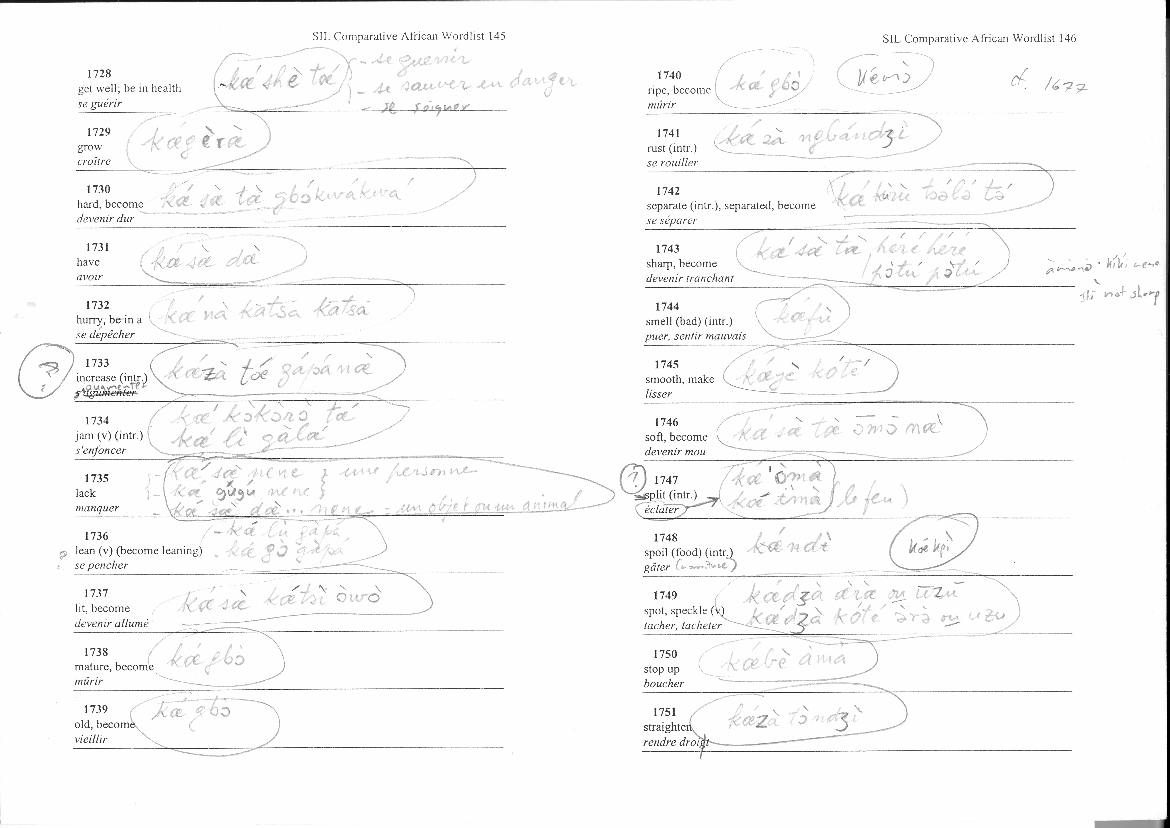 SIL Comparative African Wordlist 145
1728
get well; be in health
se guérir
-kǽ shè tǽ
- se guérir
- se sauver en danger
- se soigner
1729
grow
croître
kǽgèrà
1730
hard, become
devenir dur
kǽ sæ̀ tæ̀ gbɔ́kwákwá
1731
have
avoir
kǽ sæ̀ dæ̀
1732
hurry, be in a
se depêcher
kǽ nà kātsā kātsā
?
1733
increase (intr.)
augmenter
s'augmenter
kǽzà tǽ gápá næ̀
1734
jam (v) (intr.)
s'enfoncer
kǽ kɔ̀kɔ̀rɔ̀ tǽ
kǽ lì gàlá
1735
lack
manquer
- kǽ sæ̀ nene } une personne
- kǽ gúgú nene }
- kǽ sæ̀ dæ̀... nene - un objet ou un animal
?
1736
lean (v) (become leaning)
se pencher
- kǽ lì gàpá
- kǽ gɔ̀ gàpá
1737
lit, become
devenir allumé
kǽsæ̀ kǽtsì òwò
1738
mature, become
mûrir
kǽ gbɔ̀
1739
old, become
vieillir
kǽ gbɔ̀
SIL Comparative African Wordlist 146
1740
ripe, become
mûrir
kǽ gbɔ̀
cf. 1677
1741
rust (intr.)
se rouiller
kǽ zà ngbándʒì
1742
separate (intr.), separated, become
se séparer
1743
sharp, become
devenir tranchant
kǽ sæ̀ tæ̀ héré héré
/ pɔ̀tú pɔ̀tú
not sharp
1744
smell (bad) (intr.)
puer, sentir mauvais
kǽfù
1745
smooth, make
lisser
kǽyè kóté
1746
soft, become
devenir mou
kǽ sæ̀ tæ̀ ɔ̄mɔ̄ næ̀
?
1747
split (intr.)
éclater
kǽ òmà
kǽ tìmà (le feu)
1748
spoil (food) (intr.)
gâter
kǽ ndè
kǽ kpì
1749
spot, speckle (v)
tacher, tacheter
kǽdʒà æ̀rà ou ūzū
kǽdʒà kóté àrà ou uzu
1750
stop up
boucher
kǽbè àmà
1751
straighten
rendre droigt
kǽzà tɔ̀ndʒì